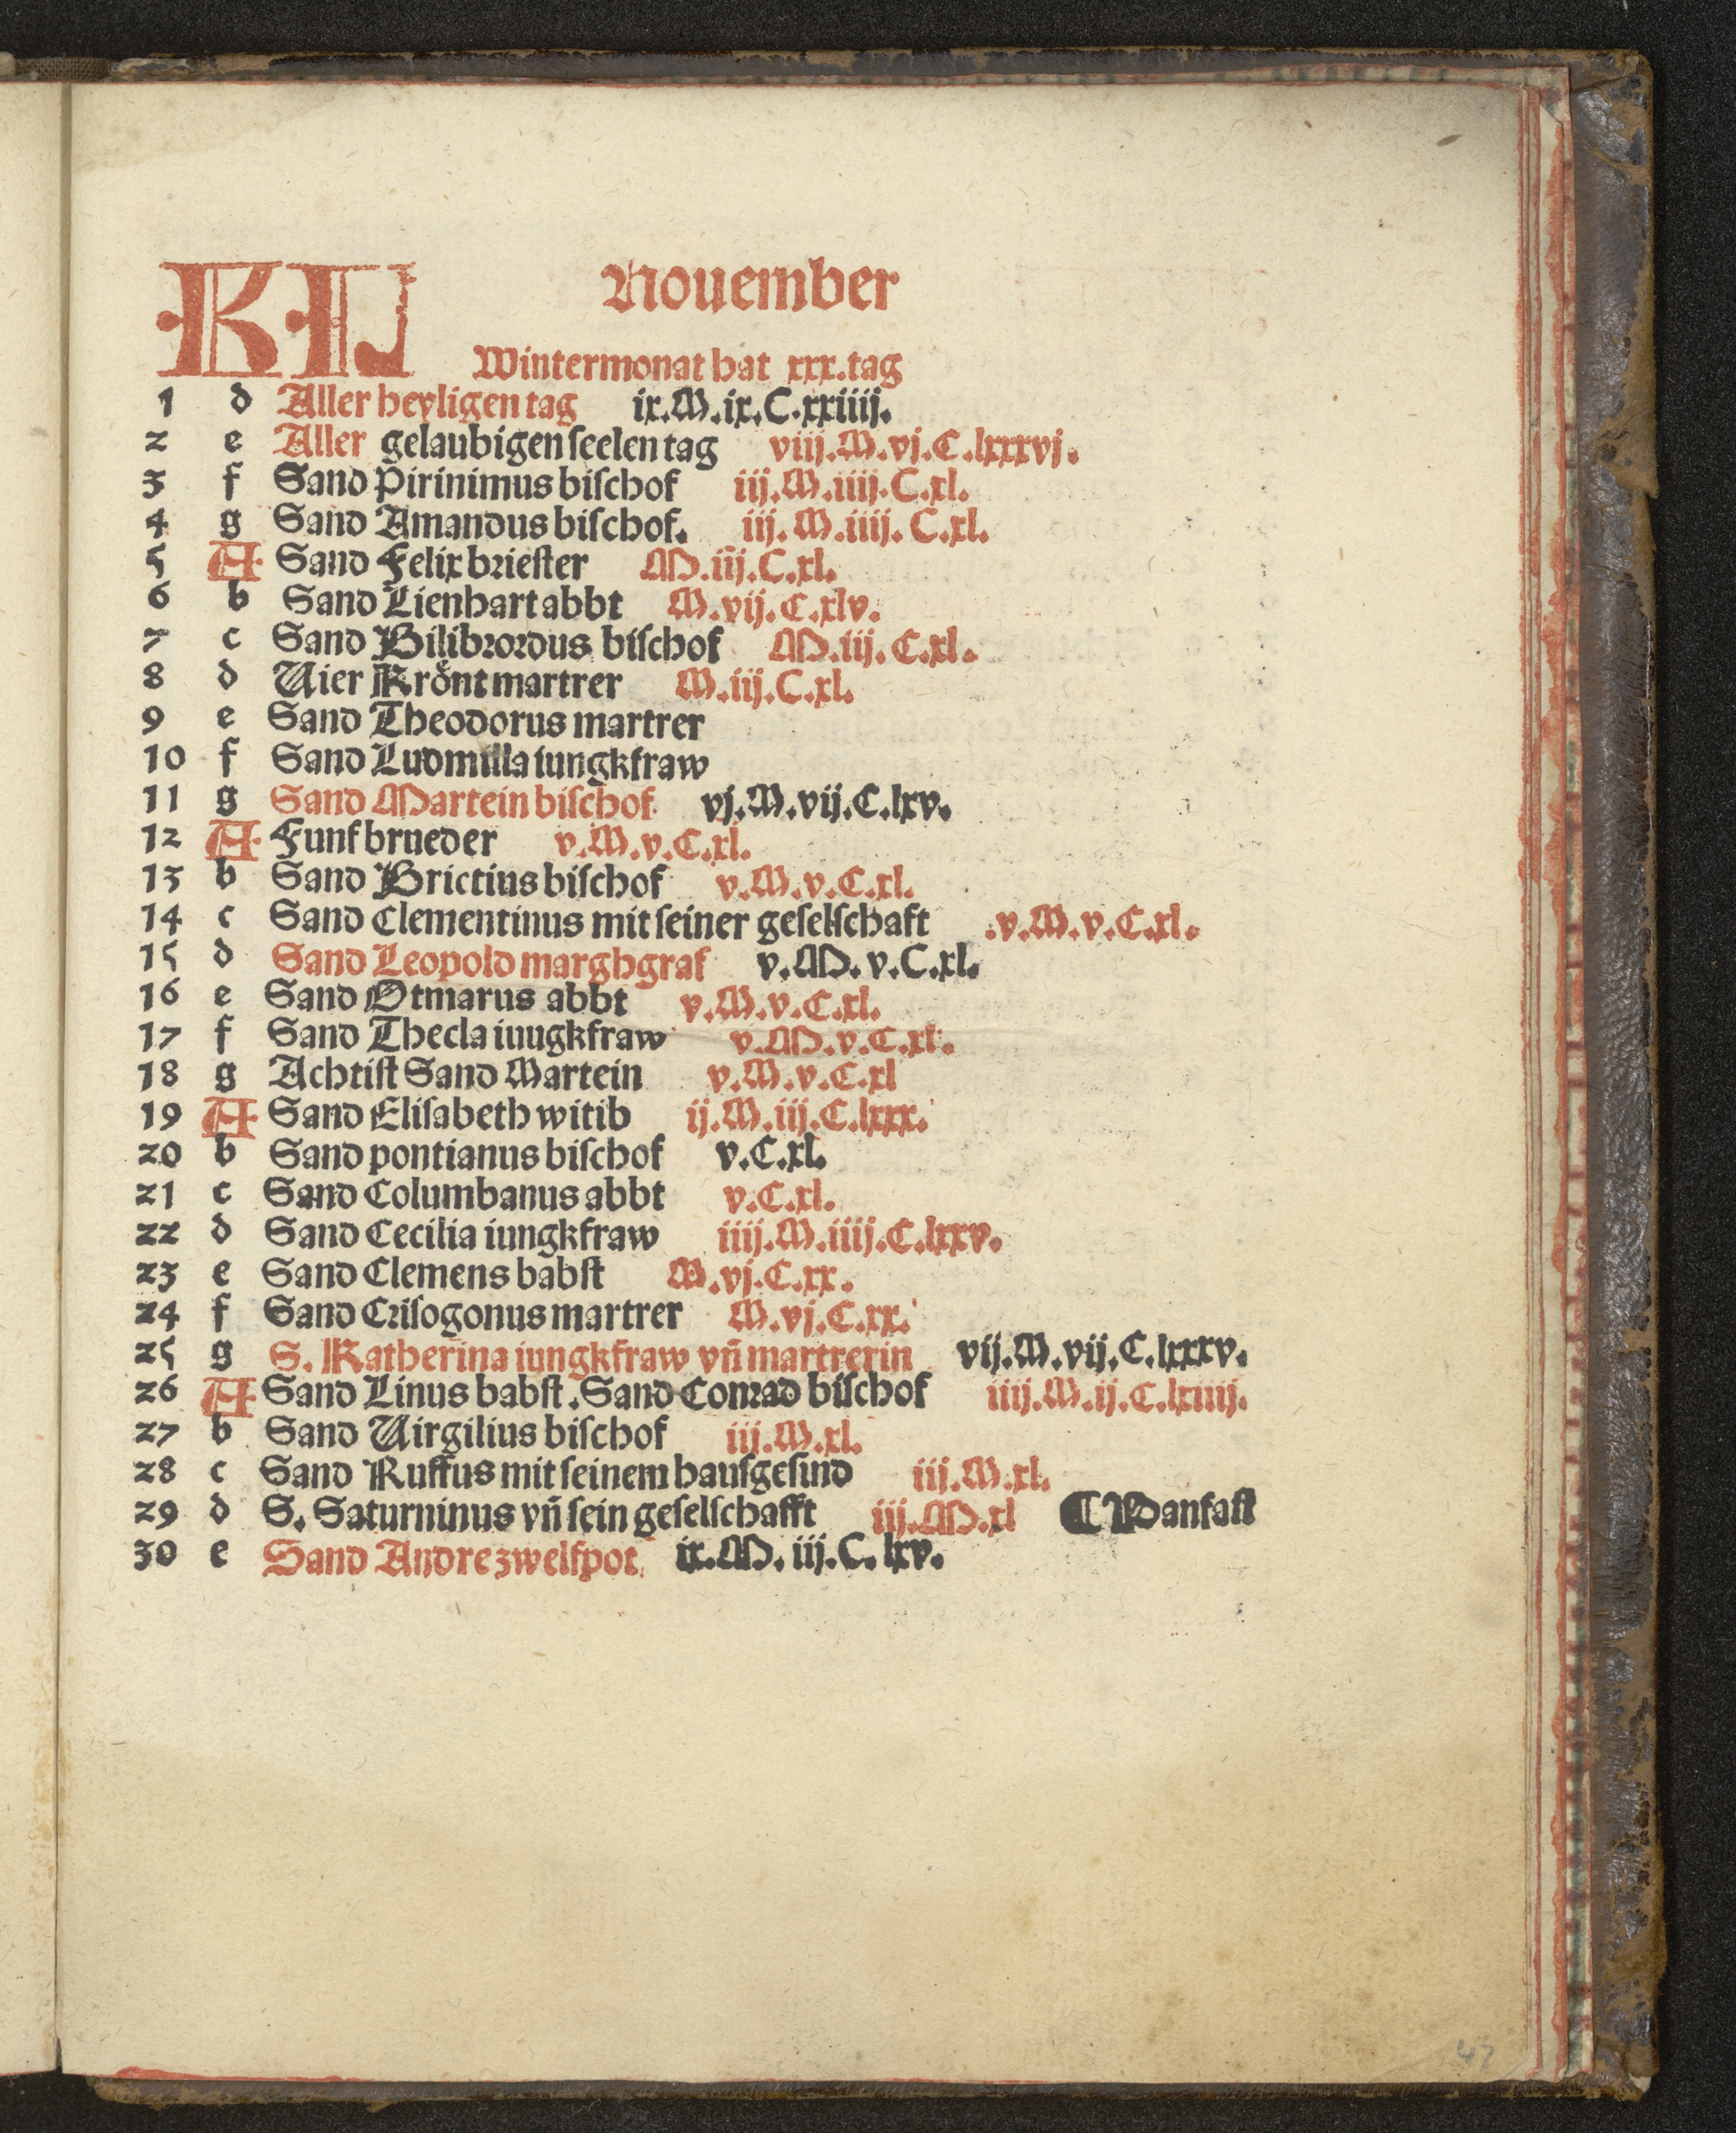 KL Nouember
Wintermonat hat xxx.tag
1 d Aller heyligen tag ix.M.ix.C.xxiiij.
2 e Aller gelaubigen seelen tag viij.M.vj.C.lxxxvj.
3 f Sand Pirinimus bischof iij.M.iiij.C.xl.
4 g Sand Amandus bischof. iij.M.iiij.C.xl.
5 A Sand Felix briester M.iij.C.xl.
6 b Sand Lienhart abbt M.vij.C.xlv.
7 c Sand Bilibrordus bischof M.iij.C.xl.
8 d Vier Kroͤnt martrer M.iij.C.xl.
9 e Sand Theodorus martrer
10 f Sand Ludmilla iungkfraw
11 g Sand Martein bischof vj.M.vij.C.lxv.
12 A Funf brueder v.M.v.C.xl.
13 b Sand Brictius bischof v.M.v.C.xl.
14 c Sand Clementinus mit seiner geselschaft .v.M.v.C.xl.
15 d Sand Leopold marghgraf v.M.v.C.xl.
16 e Sand Otmarus abbt v.M.v.C.xl.
17 f Sand Thecla iuugkfraw v.M.v.C.xl.
18 g Achtist Sand Martein v.M.v.C.xl
19 A Sand Elisabeth witib ij.M.iij.C.lxxx.
20 b Sand pontianus bischof v.C.xl.
21 c Sand Columbanus abbt v.C.xl.
22 d Sand Cecilia iungkfraw iiij.M.iiij.C.lxxv.
23 e Sand Clemens babst M.vj.C.xx.
24 f Sand Crisogonus martrer M.vj.C.xx.
25 g S. Katherina iungkfraw vn̄ martrerin vij.M.vij.C.lxxxv.
26 A Sand Linus babst. Sand Conrad bischof iiij.M.ij.C.lxiiij.
27 b Sand Virgilius bischof iij.M.xl.
28 c Sand Ruffus mit seinem hausgesind iij.M.xl.
29 d S. Saturninus vn̄ sein geselschafft iij.M.xl ¶ Panfast
30 e Sand Andre zwelfpot ix.M.iij.C.lxv.
47